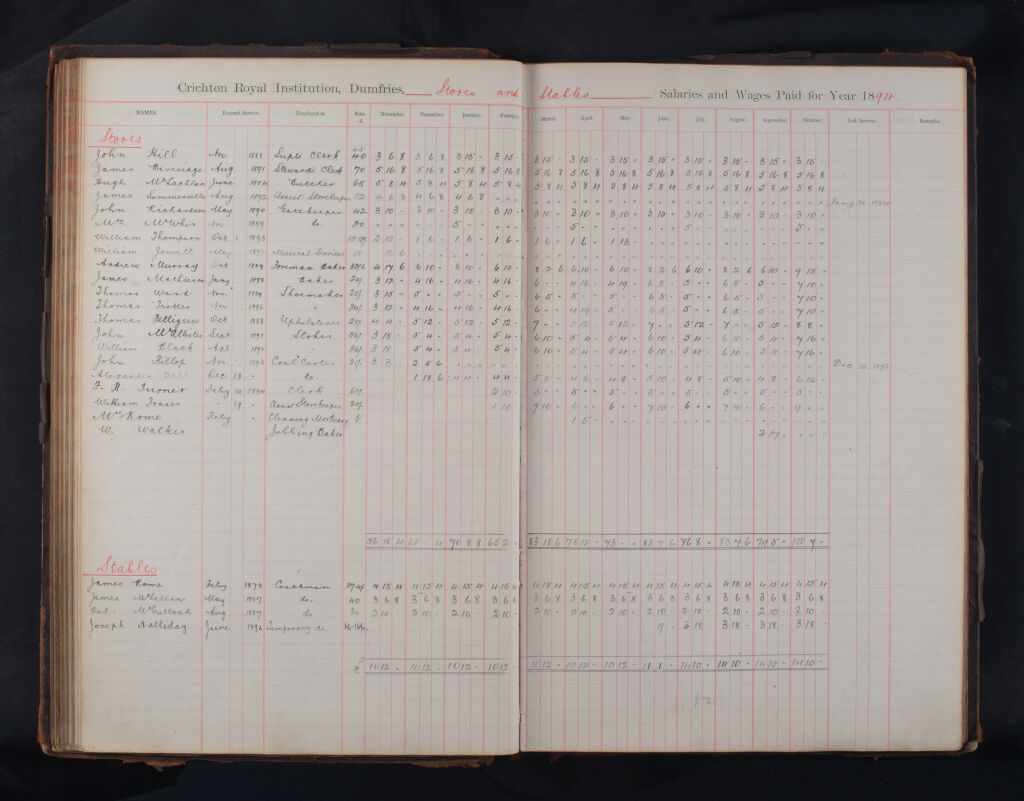 Crichton Royal Institution, Dumfries, Stores and Stables Salaries and Wages Paid for Year 1894.
NAMES. Entered Service. Employed as Rate £ November. December. January. February. March. April. May. June. July. August. September. October. Left Service. Remarks.
Stores
John Hill Nov. 1888 Supts Clerk 40 3 6 8 3 6 8 3 15 - 3 15 - 3 15 - 3 15 - 3 15 - 3 15 - 3 15 - 3 15 - 3 15 - 3 15 -
James Beveridge Aug 1891 Stewards Clerk 70 5 16 8 5 16 8 5 16 8 5 16 8 5 16 8 5 16 8 5 16 8 5 16 8 5 16 8 5 16 8 5 16 8 5 16 8
Hugh McLachlan June 1884 Butcher 65 5 8 4 5 8 4 5 8 4 5 8 4 5 8 4 5 8 4 5 8 4 5 8 4 5 8 4 5 8 4 5 8 4 5 8 4
James Sommerville Aug 1892 Assist Storekeeper 4 6 8 4 6 8 4 6 8 Jany 1894
John Richardson May 1890 Gatekeeper 42 3 10 - 3 10 - 3 10 - 3 10 - 3 10 - 3 10 - 3 10 - 3 10 - 3 10 - 3 10 - 3 10 - 3 10 -
Mrs McWhir Nov. 1889 do. 20 5 5 5 5
William Thompson Oct 1 1893 2 12 - 1 6 - 1 6 - 1 6 - 1 6 - 1 6 - 1 13 -
William Jowett May Musical Services 10 16 6
Andrew Murray Oct 1889 Foreman Baker 4 17 6 6 10 - 6 10 - 6 10 - 8 2 6 6 10 - 6 10 - 8 2 6 6 10 - 8 2 6 6 10 - 9 15 -
James Jany 1893 Baker 24/ 3 12 - 4 16 - 4 16 - 4 16 - 6 - - 4 16 - 4 19 - 6 5 - 5 - - 6 5 - 5 - - 7 10 -
Thomas Ward Nov. 1889 Shoemaker 25/ 3 15 - 5 - - 5 - - 5 - - 6 5 - 5 - - 5 - - 6 5 - 5 - - 6 5 - 5 - - 7 10 -
Thomas Trotter Nov. 1893 " 24/ 3 12 - 4 16 - 4 16 - 4 16 - 6 - - 5 - - 6 5 - 5 - - 6 5 - 5 - - 7 10 -
Thomas Pettigrew Oct 1888 Upholsterer 28/ 4 4 - 5 12 - 5 12 - 5 12 - 7 - - 5 12 - 5 12 - 7 - - 5 12 - 7 - - 5 12 - 8 8 -
John McAllister Sept 1891 Stoker 26/ 3 18 - 5 4 - 5 4 - 5 4 - 6 10 - 5 4 - 5 4 - 6 10 - 5 4 - 6 10 - 5 4 - 7 16 -
William Black Apl 189 " 26/ 3 18 - 5 4 - 5 4 - 5 4 - 6 10 - 5 4 - 5 4 - 6 10 - 5 4 - 6 10 - 5 4 - 7 16 -
John Hillop Nov - 1893 Coal Carter 21/ 3 3 - 2 5 6 Dec 16 1893
Alexander Bell Dec 18 " do. 1 18 6 4 4 - 4 4 - 5 5 - 4 6 - 4 8 - 5 10 - 4 8 - 5 10 - 4 8 - 6 12 -
F. H. Turner Feby 14 1894 Clerk 60/ 2 10 - 5 - - 5 - - 5 - - 5 - - 5 - - 5 - - 5 - - 5 - -
William Fraser " 19 " Assist Storekeeper 30/ 1 10 - 7 10 - 6 - - 6 - - 7 10 - 6 - - 7 10 - 6 - - 9 - -
Mrs Rome Feby " Cleaning Mortuary 5 1 5 -
W. Walker Jobbing Baker
56 16 4 65 - 4 70 8 8 65 2 - 83 18 6 78 12 - 73 - - 83 7 6 76 8 - 83 7 6 100 7 -
Stables
James Rome Feby 1878 Coachman 4 15 4 4 15 4 4 15 4 4 15 4 4 15 4 4 15 4 4 15 4 4 15 4 4 15 4 4 15 4 4 15 4 4 15 4
James McLellan May 1887 do. 40 3 6 8 3 6 8 3 6 8 3 6 8 3 6 8 3 6 8 3 6 8 3 6 8 3 6 8 3 6 8 3 6 8 3 6 8
Pat. McCulloch Aug 1887 do 30 2 10 - 2 10 - 2 10 - 2 10 - 2 10 - 2 10 - 2 10 - 2 10 - 2 10 - 2 10 - 2 10 - 2 10 -
Joseph Halliday June 1894 Temporary do 9 - 3 18 - 3 18 - 3 18 - 3 18 -
£ 10 12 - 10 12 - 10 12 - 10 12 - 10 12 - 10 12 - 10 12 - 11 1 - 14 10 - 14 10 - 14 10 - 14 10 -